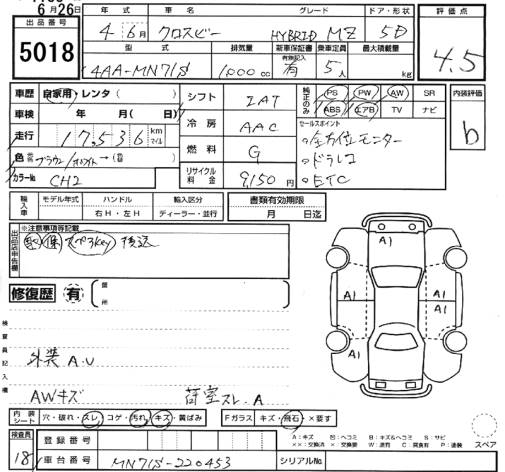 6月26日
出品番号
5018
年式 車名 グレード ドア・形状 評価点
4年6月 クロスビー HYBRID MZ 5D
4.5
型式 排気量 新車保証書 乗車定員 最大積載量
有無記入
4AA-MN71S 1,000cc 有 5人 kg
車歴 自家用・レンタ( )
車検 年 月( )
走行 17,536 km マイル
色 ブラウン/ホワイト→( )
カラーNo CH2
シフト IAT
冷房 AAC
燃料 G
リサイクル料金 9,150円
純正のみ PS PW AW SR
ABS エアB TV ナビ
セールスポイント
○全方位モニター
○ドラレコ
○ETC
内装評価
b
輸入車 モデル年式 ハンドル 輸入区分 書類有効期限
右H・左H ディーラー・並行 月 日迄
出品店申告欄 ※注意事項等記載
取 保 スペアkey 後送
修復歴 有 箇所
検査員記入欄
外装 A.U
AWキズ 荷室スレ.A
A1
A1 A1
A1
内装シート 穴・破れ・スレ コゲ・汚れ・キズ・黄ばみ Fガラス キズ・飛石 ×要す
A:キズ 凹:ヘコミ B:キズ&ヘコミ S:サビ
××:交換済 ×:交換要 W:波打 C:腐食有 P:塗装
スペア
検査員 18
登録番号
車台番号 MN71S-220453 シリアルNo